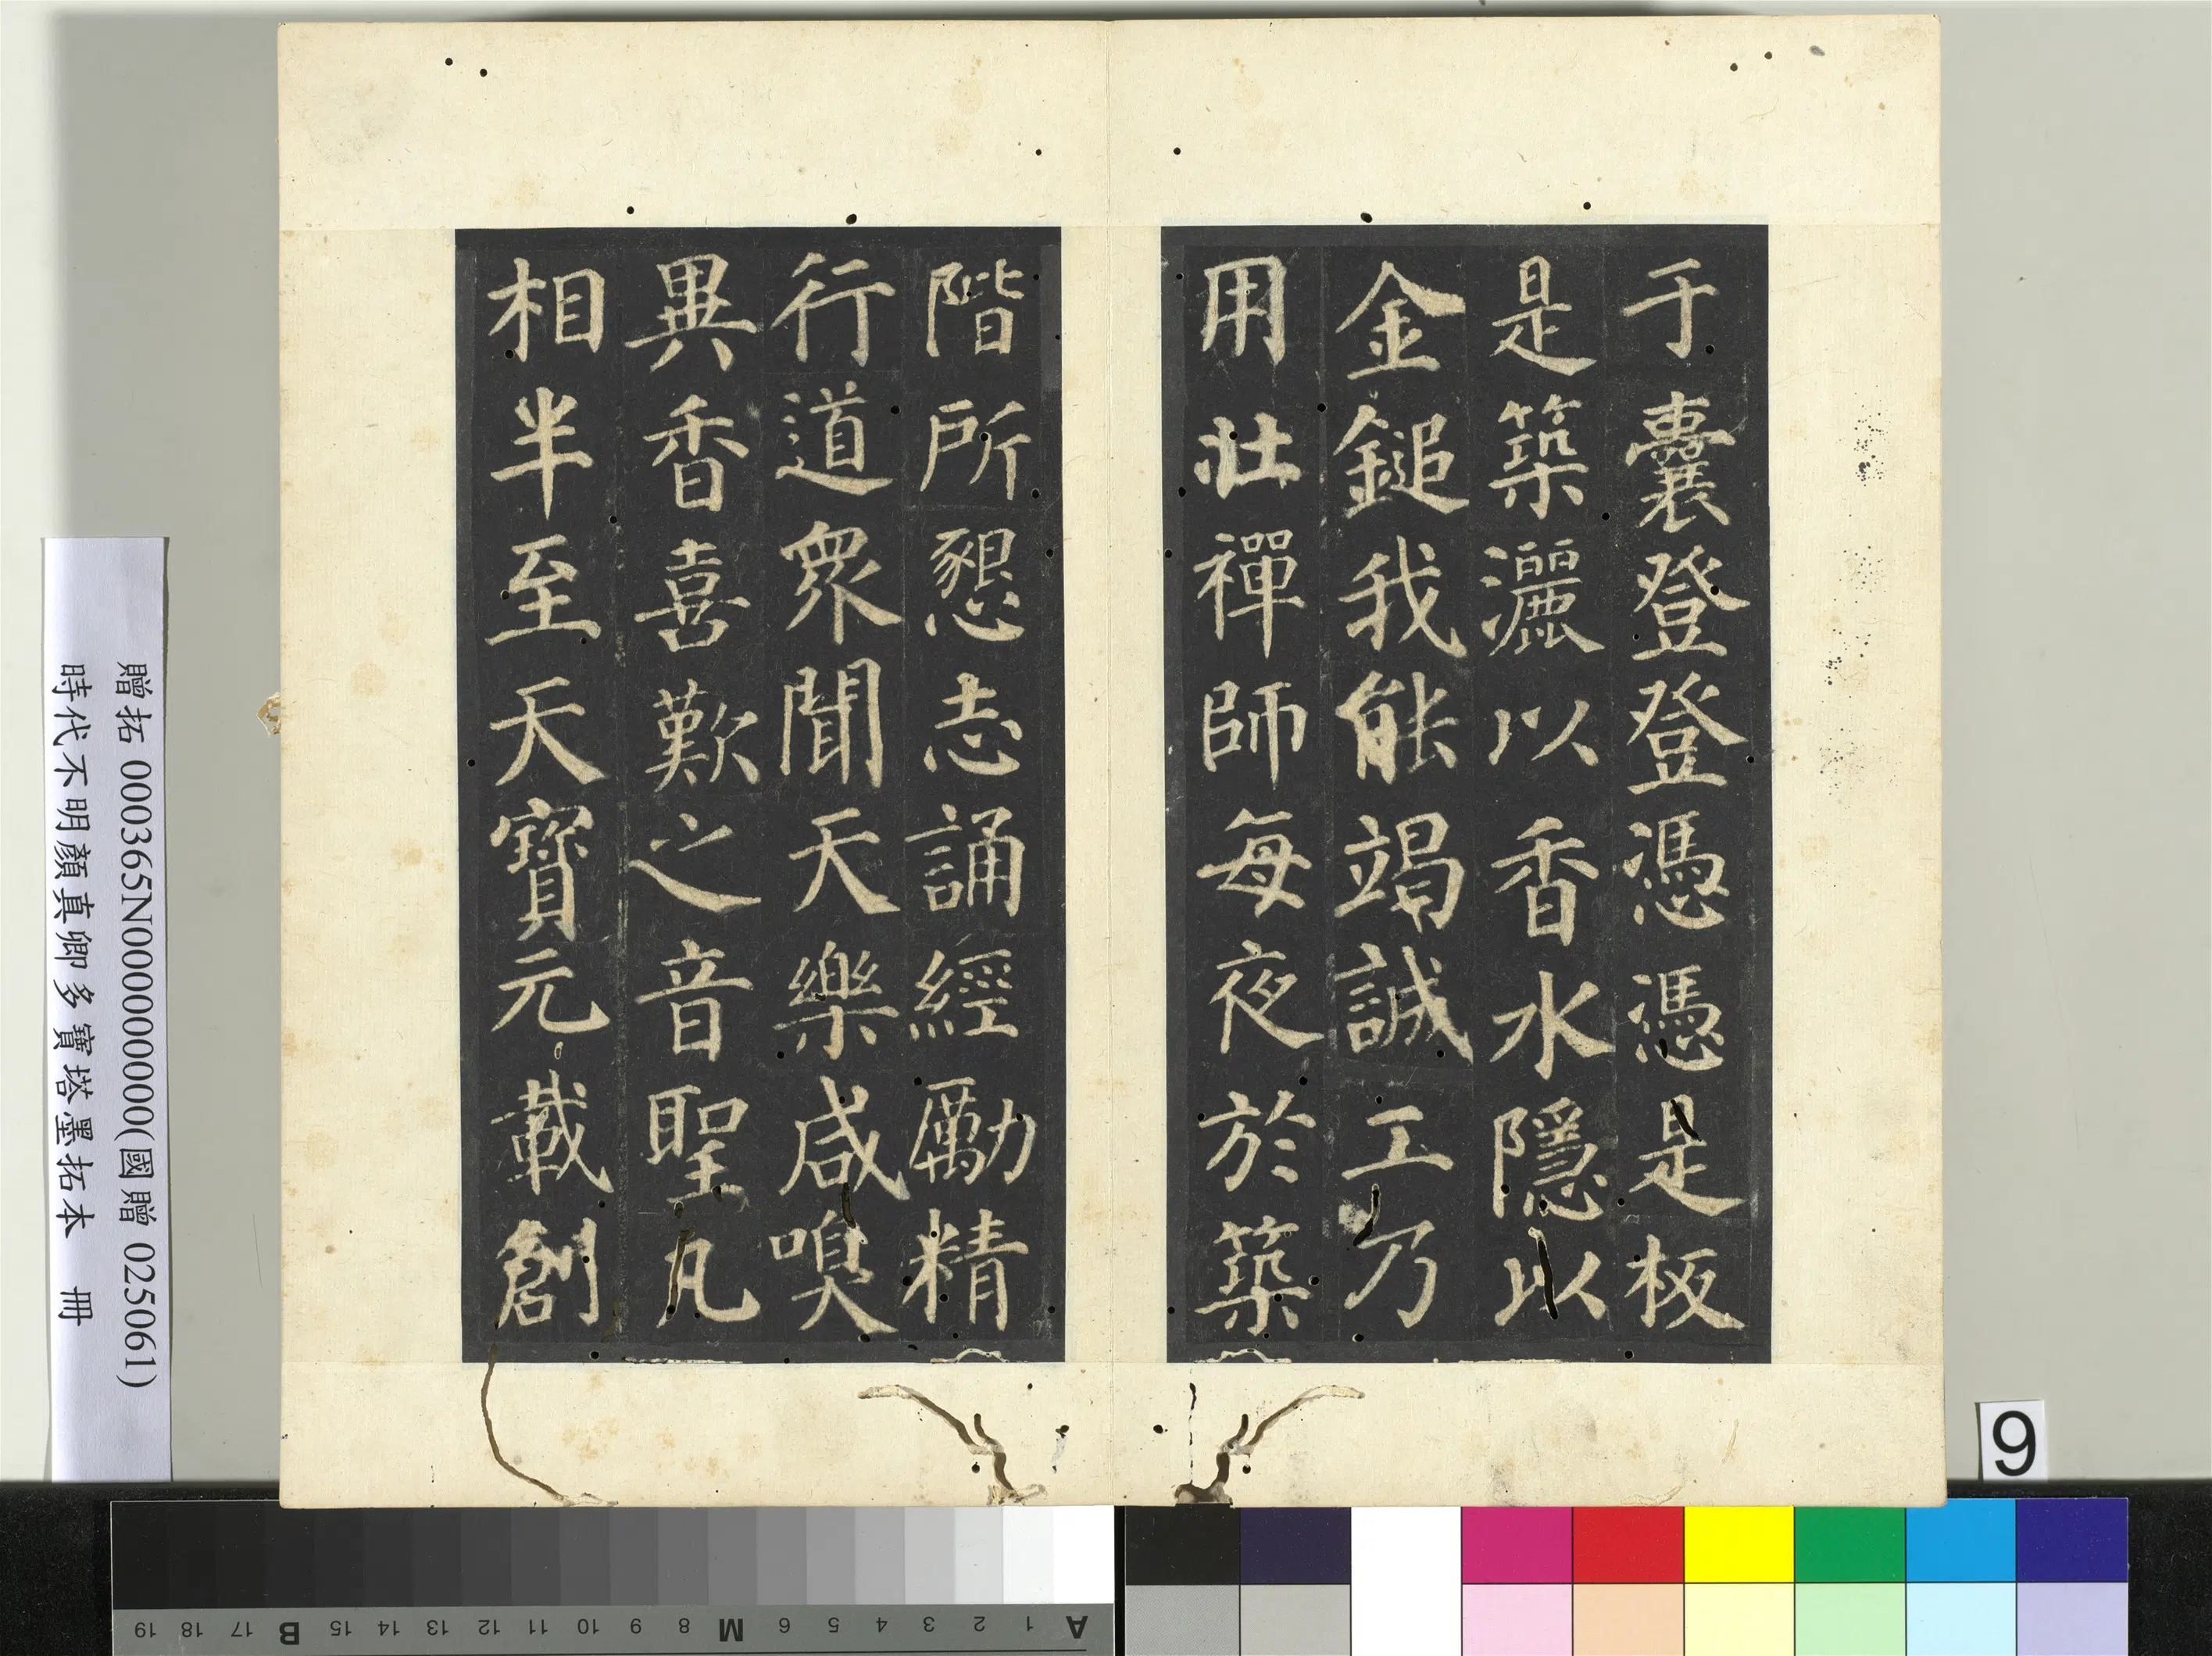 于囊登登憑憑是板
是築灑以香水隱以
金鎚我能竭誠工乃
用壯禪師每夜於築
階所懇志誦經勵精
行道衆聞天樂咸嗅
異香喜歎之音聖凡
相半至天寶元載創
贈拓 000365N000000000(國贈 025061)
時代不明顏真卿多寶塔墨拓本 冊
9
A 1 2 3 4 5 6 M 8 9 10 11 12 13 14 15 B 17 18 19